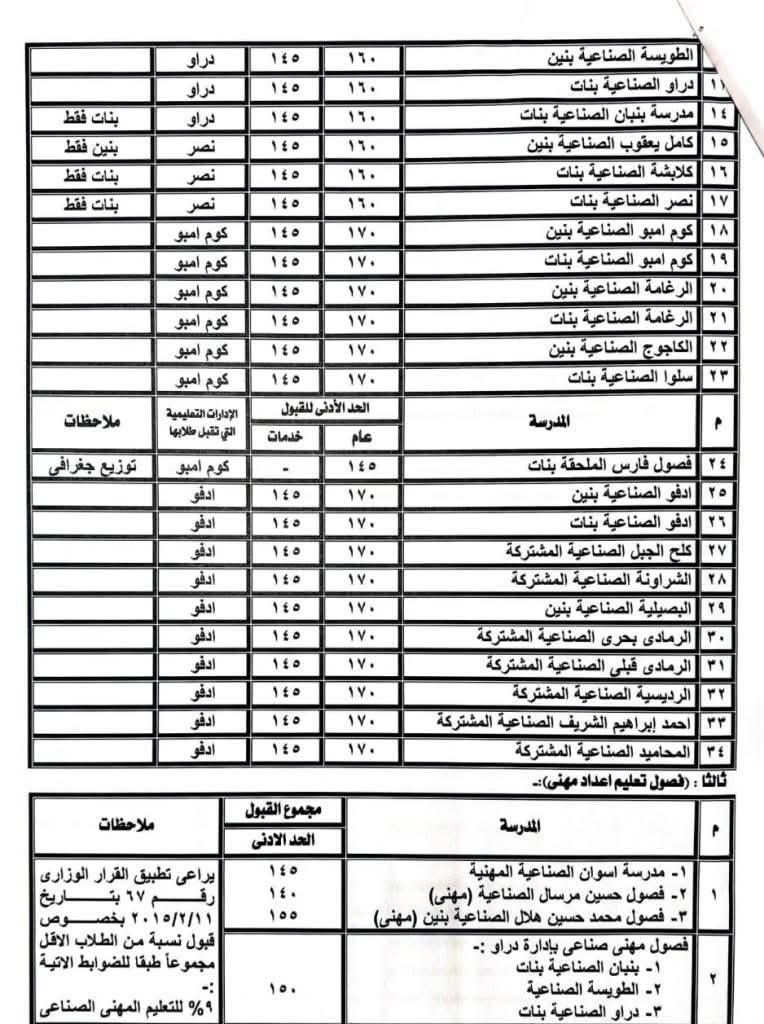 الطويسة الصناعية بنين ١٦٠ ١٤٥ دراو
دراو الصناعية بنات ١٦٠ ١٤٥ دراو
١٤ مدرسة بنبان الصناعية بنات ١٦٠ ١٤٥ دراو بنات فقط
١٥ كامل يعقوب الصناعية بنين ١٦٠ ١٤٥ نصر بنين فقط
١٦ كلابشة الصناعية بنات ١٦٠ ١٤٥ نصر بنات فقط
١٧ نصر الصناعية بنات ١٦٠ ١٤٥ نصر بنات فقط
١٨ كوم امبو الصناعية بنين ١٧٠ ١٤٥ كوم امبو
١٩ كوم امبو الصناعية بنات ١٧٠ ١٤٥ كوم امبو
٢٠ الرغامة الصناعية بنين ١٧٠ ١٤٥ كوم امبو
٢١ الرغامة الصناعية بنات ١٧٠ ١٤٥ كوم امبو
٢٢ الكاجوج الصناعية بنين ١٧٠ ١٤٥ كوم امبو
٢٣ سلوا الصناعية بنات ١٧٠ ١٤٥ كوم امبو
م المدرسة الحد الأدنى للقبول الإدارات التعليمية ملاحظات
عام خدمات التي تقبل طلابها
٢٤ فصول فارس الملحقة بنات ١٤٥ - كوم امبو توزيع جغرافى
٢٥ ادفو الصناعية بنين ١٧٠ ١٤٥ ادفو
٢٦ ادفو الصناعية بنات ١٧٠ ١٤٥ ادفو
٢٧ كلح الجبل الصناعية المشتركة ١٧٠ ١٤٥ ادفو
٢٨ الشراونة الصناعية المشتركة ١٧٠ ١٤٥ ادفو
٢٩ البصيلية الصناعية بنين ١٧٠ ١٤٥ ادفو
٣٠ الرمادى بحرى الصناعية المشتركة ١٧٠ ١٤٥ ادفو
٣١ الرمادى قبلى الصناعية المشتركة ١٧٠ ١٤٥ ادفو
٣٢ الرديسية الصناعية المشتركة ١٧٠ ١٤٥ ادفو
٣٣ احمد إبراهيم الشريف الصناعية المشتركة ١٧٠ ١٤٥ ادفو
٣٤ المحاميد الصناعية المشتركة ١٧٠ ١٤٥ ادفو
ثالثا : (فصول تعليم اعداد مهنى):-
م المدرسة مجموع القبول ملاحظات
الحد الادنى
١ ١- مدرسة اسوان الصناعية المهنية ١٤٥
٢- فصول حسين مرسال الصناعية (مهنى) ١٤٠
٣- فصول محمد حسين هلال الصناعية بنين (مهنى) ١٥٥
يراعى تطبيق القرار الوزارى
رقم ٦٧ بتاريخ
٢٠١٥/٢/١١ بخصوص
قبول نسبة من الطلاب الاقل
مجموعاً طبقا للضوابط الاتية
:-
٩% للتعليم المهنى الصناعى
٢ فصول مهنى صناعى بإدارة دراو :- ١٥٠
١- بنبان الصناعية بنات
٢- الطويسة الصناعية
٣- دراو الصناعية بنات